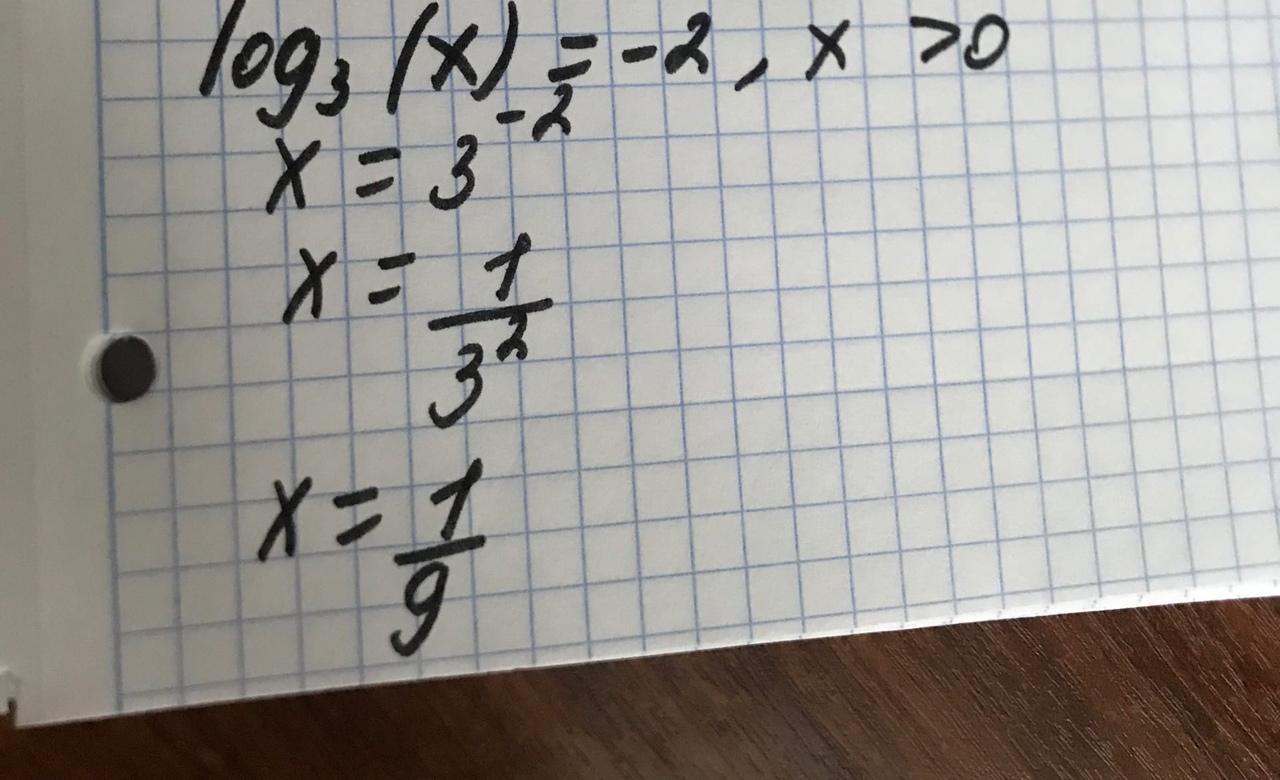 log₃(x) = -2, x > 0
x = 3⁻²
x = 1/3²
x = 1/9